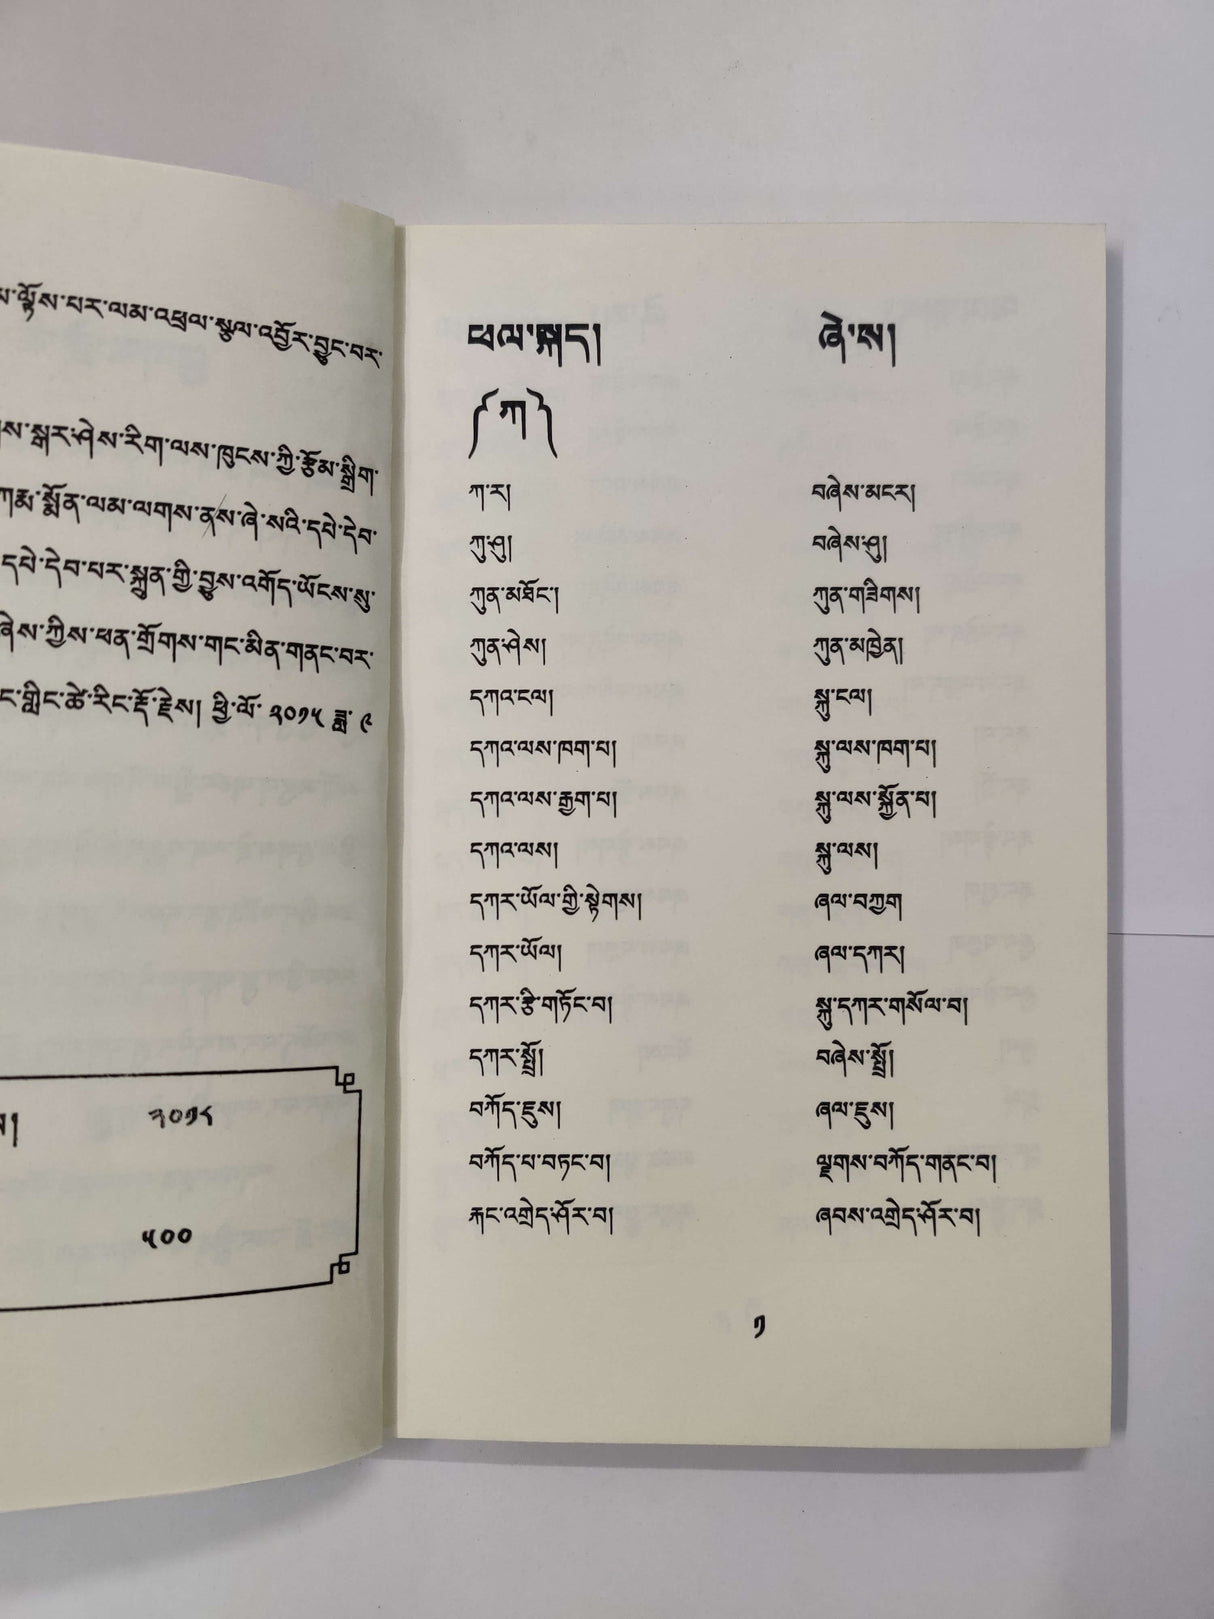 ལྟོས་པར་ལམ་འཕྲལ་སྩུལ་འབྱོར་བྱུང་བར་
སྒར་ཤེས་རིག་ལས་ཁུངས་ཀྱི་རྩོམ་སྒྲིག་
ཀརྨ་སྨོན་ལམ་ལགས་ནས་ཞེ་སའི་དཔེ་དེབ་
དཔེ་དེབ་པར་སྐྲུན་གྱི་བྱུས་འགོད་ཡོངས་སུ་
ཞེས་ཀྱིས་ཕན་གྲོགས་གང་མིན་གནང་བར་
གླིང་ཚེ་རིང་རྡོ་རྗེས། ཕྱི་ལོ་ ༢༠༡༥ ཟླ་ ༩
༢༠༡༥
༥༠༠
ཕལ་སྐད། ཞེ་ས།
༼ཀ༽
ཀ་ར། བཞེས་མངར།
ཀུ་ཤུ། བཞེས་ཤུ།
ཀུན་མཐོང་། ཀུན་གཟིགས།
ཀུན་ཤེས། ཀུན་མཁྱེན།
དཀའ་ངལ། སྐུ་ངལ།
དཀའ་ལས་ཁག་པ། སྐུ་ལས་ཁག་པ།
དཀའ་ལས་རྒྱག་པ། སྐུ་ལས་སྐྱོན་པ།
དཀའ་ལས། སྐུ་ལས།
དཀར་ཡོལ་གྱི་སྟེགས། ཞལ་བཀྱག
དཀར་ཡོལ། ཞལ་དཀར།
དཀར་རྩི་གཏོང་བ། སྐུ་དཀར་གསོལ་བ།
དཀར་སྤྲོ། བཞེས་སྤྲོ།
བཀོད་ཇུས། ཞལ་ཇུས།
བཀོད་པ་བཏང་བ། ལྗགས་བཀོད་གནང་བ།
རྐང་འགྲེད་ཤོར་བ། ཞབས་འགྲེད་ཤོར་བ།
༡